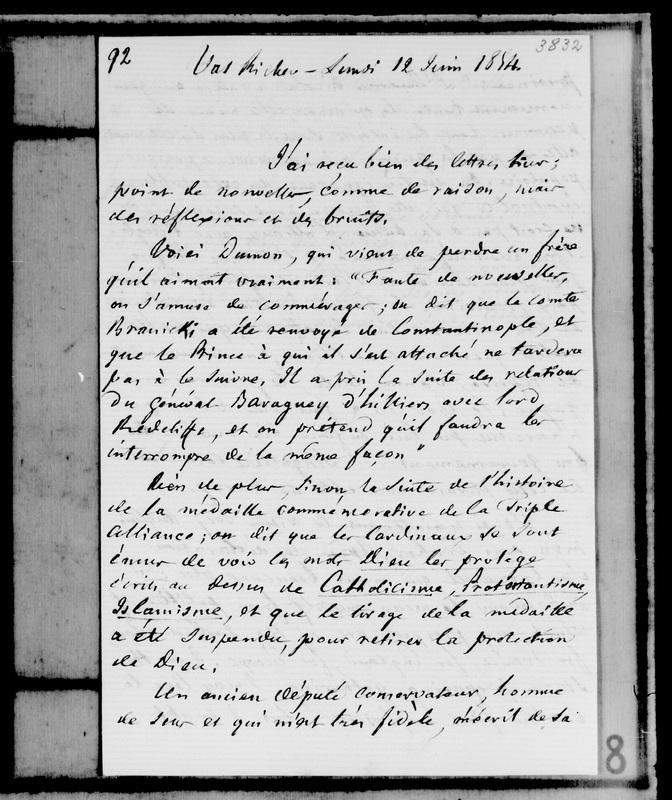 92
3832
Val Richer - Lundi 12 Juin 1854
J'ai reçu bien des lettres hier;
point de nouvelles, comme de raison, mais
des réflexions et des bruits.
Voici Dumon, qui vient de perdre un frère
qu'il aimait vraiment: "Faute de nouvelles,
on s'amuse de commérages; on dit que le comte
Branicki a été renvoyé de Constantinople, et
que le Prince à qui il s'est attaché ne tardera
pas à le suivre. Il a pris la suite des relations
du général Baraguey d'hilliers avec lord
Redcliffe, et on prétend qu'il faudra les
interrompre de la même façon"
Rien de plus, sinon la suite de l'histoire
de la médaille commémorative de la Triple
alliance; on dit que les Cardinaux se sont
émus de voir les mots Dieu les protège
écrits au dessus de Catholicisme, Protestantisme,
Islamisme, et que le tirage de la médaille
a été suspendu, pour retirer la protection
de Dieu.
Un ancien député conservateur, homme
de sens et qui m'est très fidèle, m'écrit de sa
8